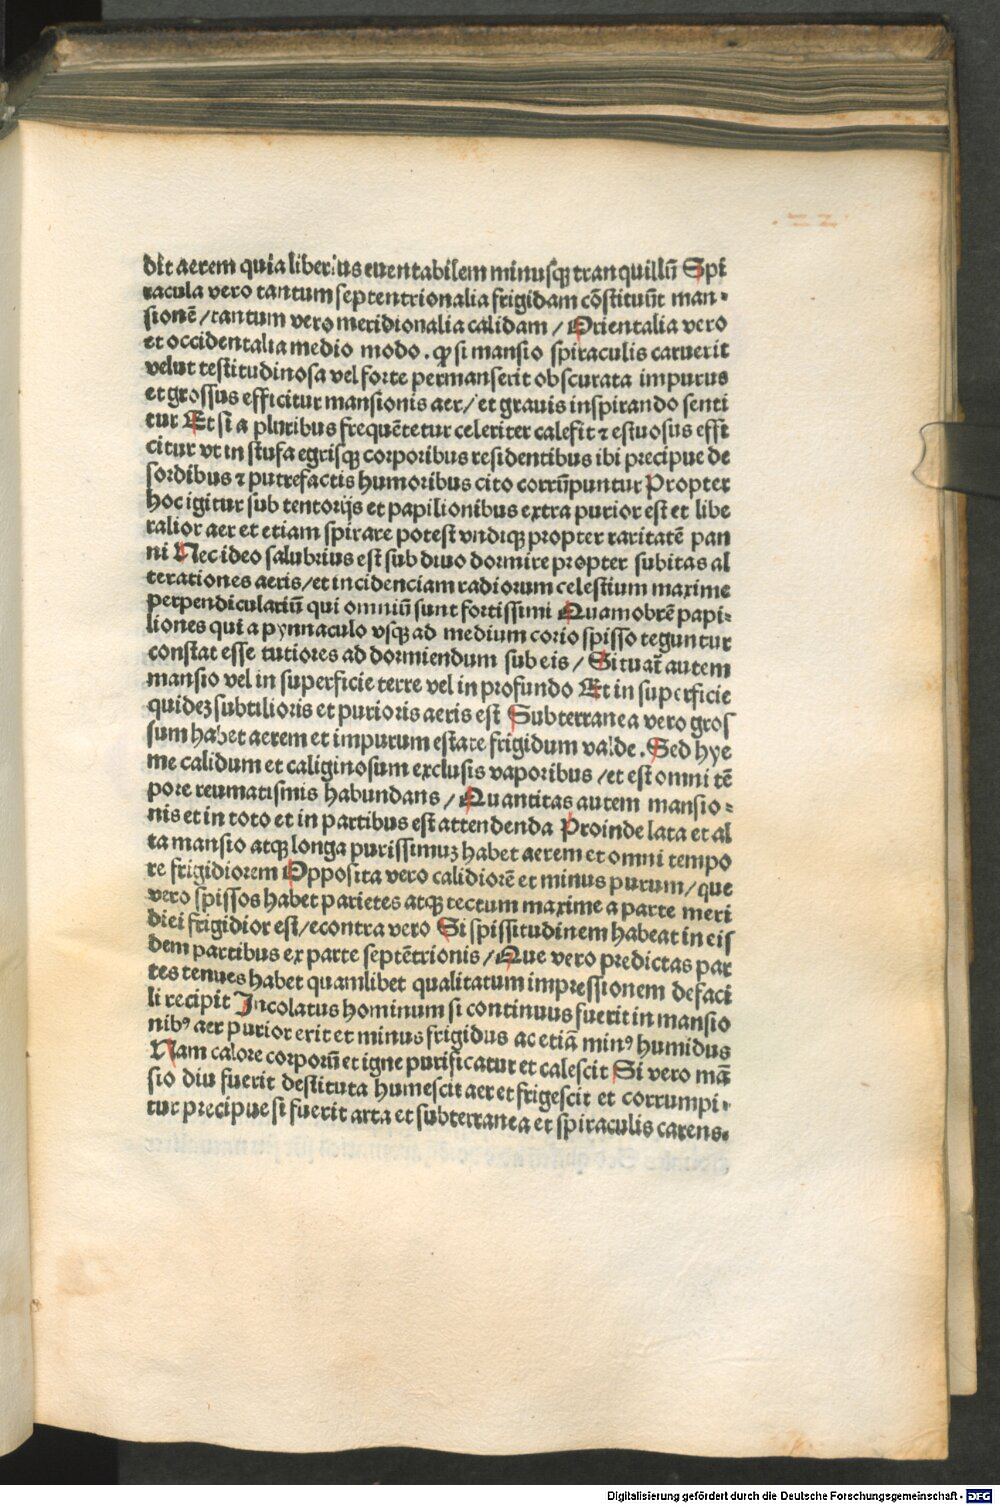 dit aerem quia liberius euentabilem minusqʒ tranquillū Spi
racula vero tantum septentrionalia frigidam cōstituūt man-
sionē / tantum vero meridionalia calidam / Orientalia vero
et occidentalia medio modo . ꝙ si mansio spiraculis caruerit
velut testitudinosa vel forte permanserit obscurata impurus
et grossus efficitur mansionis aer / et grauis inspirando senti
tur Et si a pluribus frequētetur celeriter calefit ⁊ estuosus effi
citur vt in stufa egrisqʒ corporibus residentibus ibi precipue de
sordibus ⁊ putrefactis humoribus cito corrūpuntur Propter
hoc igitur sub tentorijs et papilionibus extra purior est et libe
ralior aer et etiam spirare potest vndiqʒ propter raritatē pan
ni Nec ideo salubrius est sub diuo dormire propter subitas al
terationes aeris / et incidenciam radiorum celestium maxime
perpendiculariū qui omniū sunt fortissimi Quamobrē papi-
liones qui a pynnaculo vsqʒ ad medium corio spisso teguntur
constat esse tutiores ad dormiendum sub eis / Situat̄ autem
mansio vel in superficie terre vel in profundo Et in superficie
quideʒ subtilioris et purioris aeris est Subterranea vero gros
sum habet aerem et impurum estate frigidum valde . Sed hye
me calidum et caliginosum exclusis vaporibus / et est omni tē
pore reumatismis habundans / Quantitas autem mansio-
nis et in toto et in partibus est attendenda Proinde lata et al
ta mansio atqʒ longa purissimuʒ habet aerem et omni tempo
re frigidiorem Opposita vero calidiorē et minus purum / que
vero spissos habet parietes atqʒ tectum maxime a parte meri
diei frigidior est / econtra vero Si spissitudinem habeat in eis
dem partibus ex parte septētrionis / Que vero predictas par
tes tenues habet quamlibet qualitatum impressionem defaci
li recipit Incolatus hominum si continuus fuerit in mansio
nibꝰ aer purior erit et minus frigidus ac etiā minꝰ humidus
Nam calore corporū et igne purificatur et calescit Si vero mā
sio diu fuerit destituta humescit aer et frigescit et corrumpi-
tur precipue si fuerit arta et subterranea et spiraculis carens.
Digitalisierung gefördert durch die Deutsche Forschungsgemeinschaft - DFG